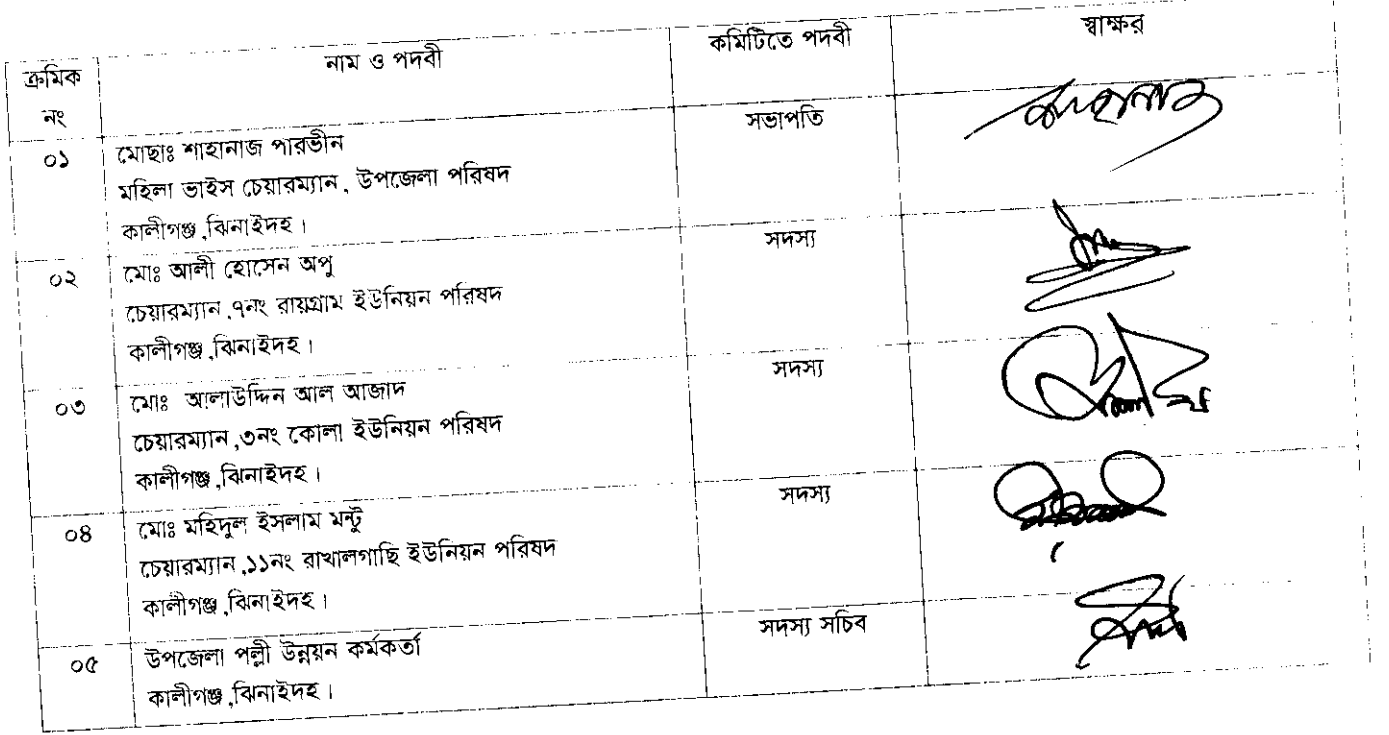 ক্রমিক নং নাম ও পদবী কমিটিতে পদবী স্বাক্ষর
০১ মোছাঃ শাহানাজ পারভীন সভাপতি শাহানাজ
মহিলা ভাইস চেয়ারম্যান, উপজেলা পরিষদ
কালীগঞ্জ,ঝিনাইদহ।
০২ মোঃ আলী হোসেন অপু সদস্য
চেয়ারম্যান,৭নং রায়গ্রাম ইউনিয়ন পরিষদ
কালীগঞ্জ,ঝিনাইদহ।
০৩ মোঃ আলাউদ্দিন আল আজাদ সদস্য
চেয়ারম্যান,৩নং কোলা ইউনিয়ন পরিষদ
কালীগঞ্জ,ঝিনাইদহ।
০৪ মোঃ মহিদুল ইসলাম মন্টু সদস্য
চেয়ারম্যান,১১নং রাখালগাছি ইউনিয়ন পরিষদ
কালীগঞ্জ,ঝিনাইদহ।
০৫ উপজেলা পল্লী উন্নয়ন কর্মকর্তা সদস্য সচিব
কালীগঞ্জ,ঝিনাইদহ।